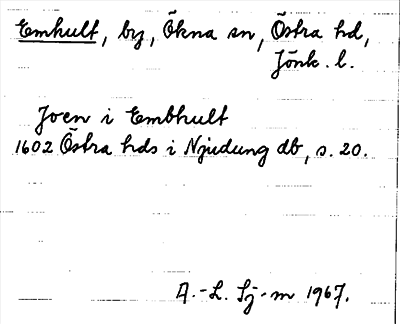 Emhult, by, Ökna sn, Östra hd,
Jönk. l.
Joen i Embhult
1602 Östra hds i Njudung db, s. 20.
A.-L. Sj-m 1967.